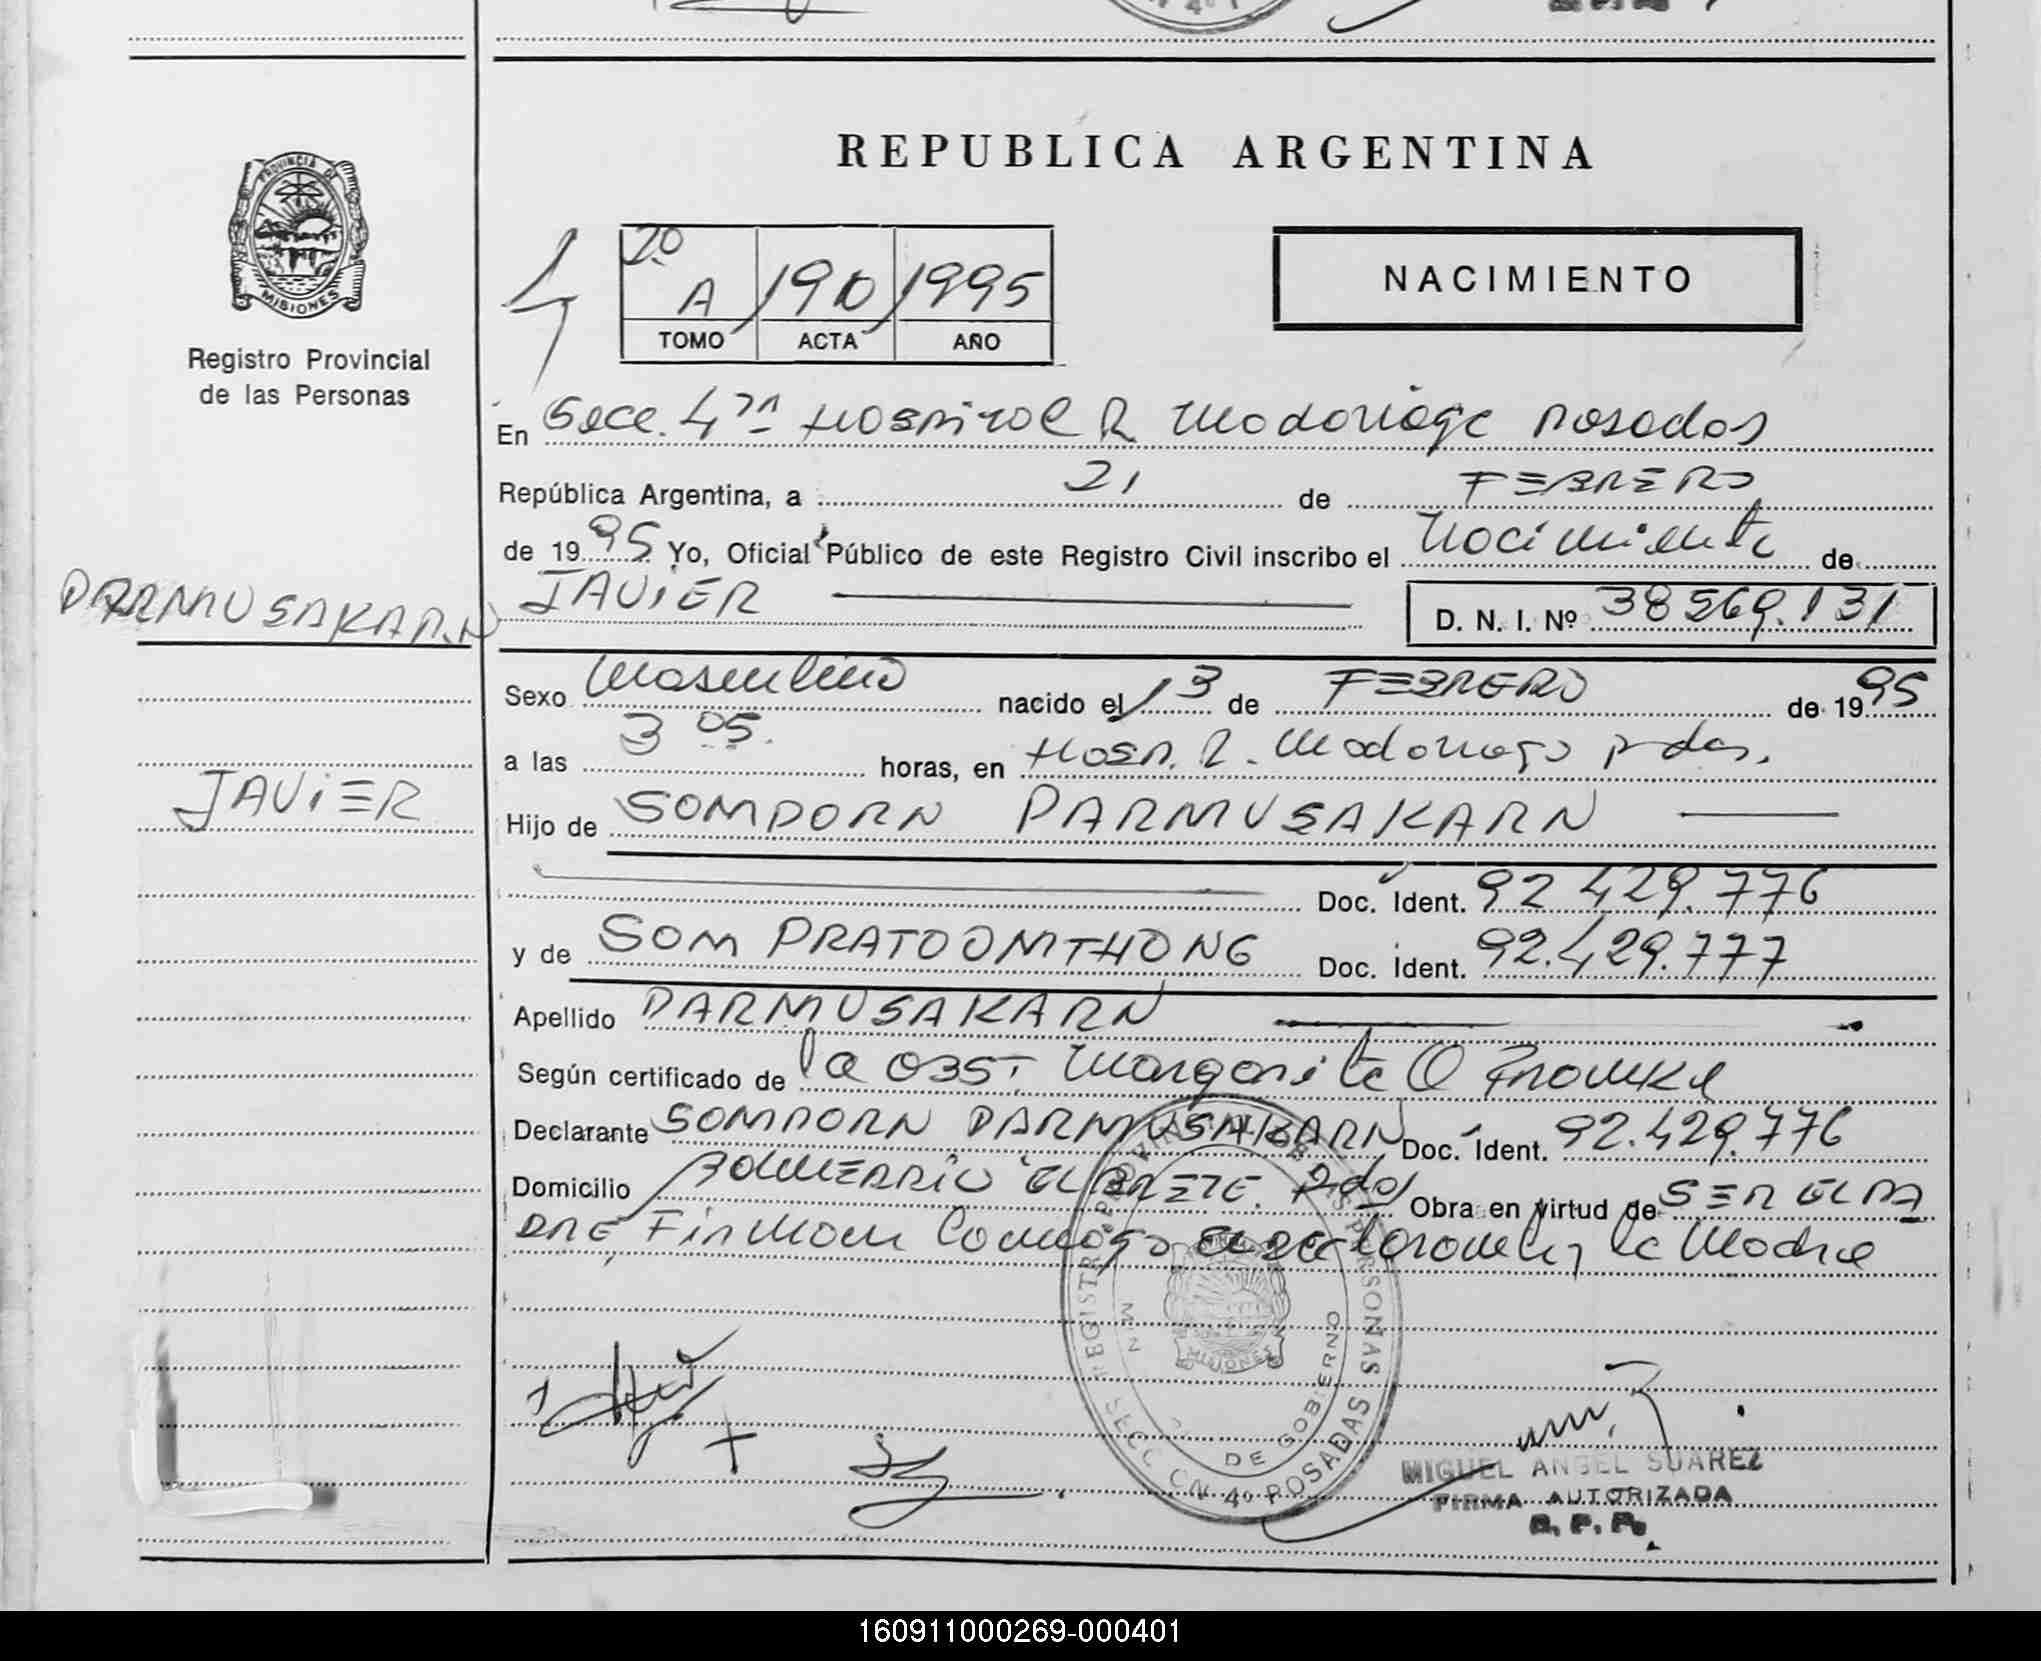 PROVINCIA DE
MISIONES
Registro Provincial
de las Personas
PARMUSAKARN
JAVIER
REPUBLICA ARGENTINA
2º A 190 1995
TOMO ACTA AÑO
NACIMIENTO
En Secc. 4ta Hospital R Madariaga Posadas
República Argentina, a 21 de FEBRERO
de 1995 Yo, Oficial Público de este Registro Civil inscribo el Nacimiento de
JAVIER D. N. I. Nº 38569.131
Sexo Masculino nacido el 13 de FEBRERO de 1995
a las 3 05. horas, en Hosp. R. Madariaga Pdas.
Hijo de SOMPORN PARMUSAKARN
Doc. Ident. 92 429.776
y de SOM PRATOOMTHONG Doc. Ident. 92.429.777
Apellido PARMUSAKARN
Según certificado de la OBST. Margarita
Declarante SOMPORN PARMUSAKARN Doc. Ident. 92.429.776
Domicilio EL BRETE. Pdas Obra en virtud de SER EL PA
DRE, Firman Conmigo el declarante y la Madre
REGISTRO PROVINCIAL DE LAS PERSONAS
MISIONES
DE GOBIERNO
SECCION 4º POSADAS
MIGUEL ANGEL SUAREZ
FIRMA AUTORIZADA
R. P. P.
160911000269-000401